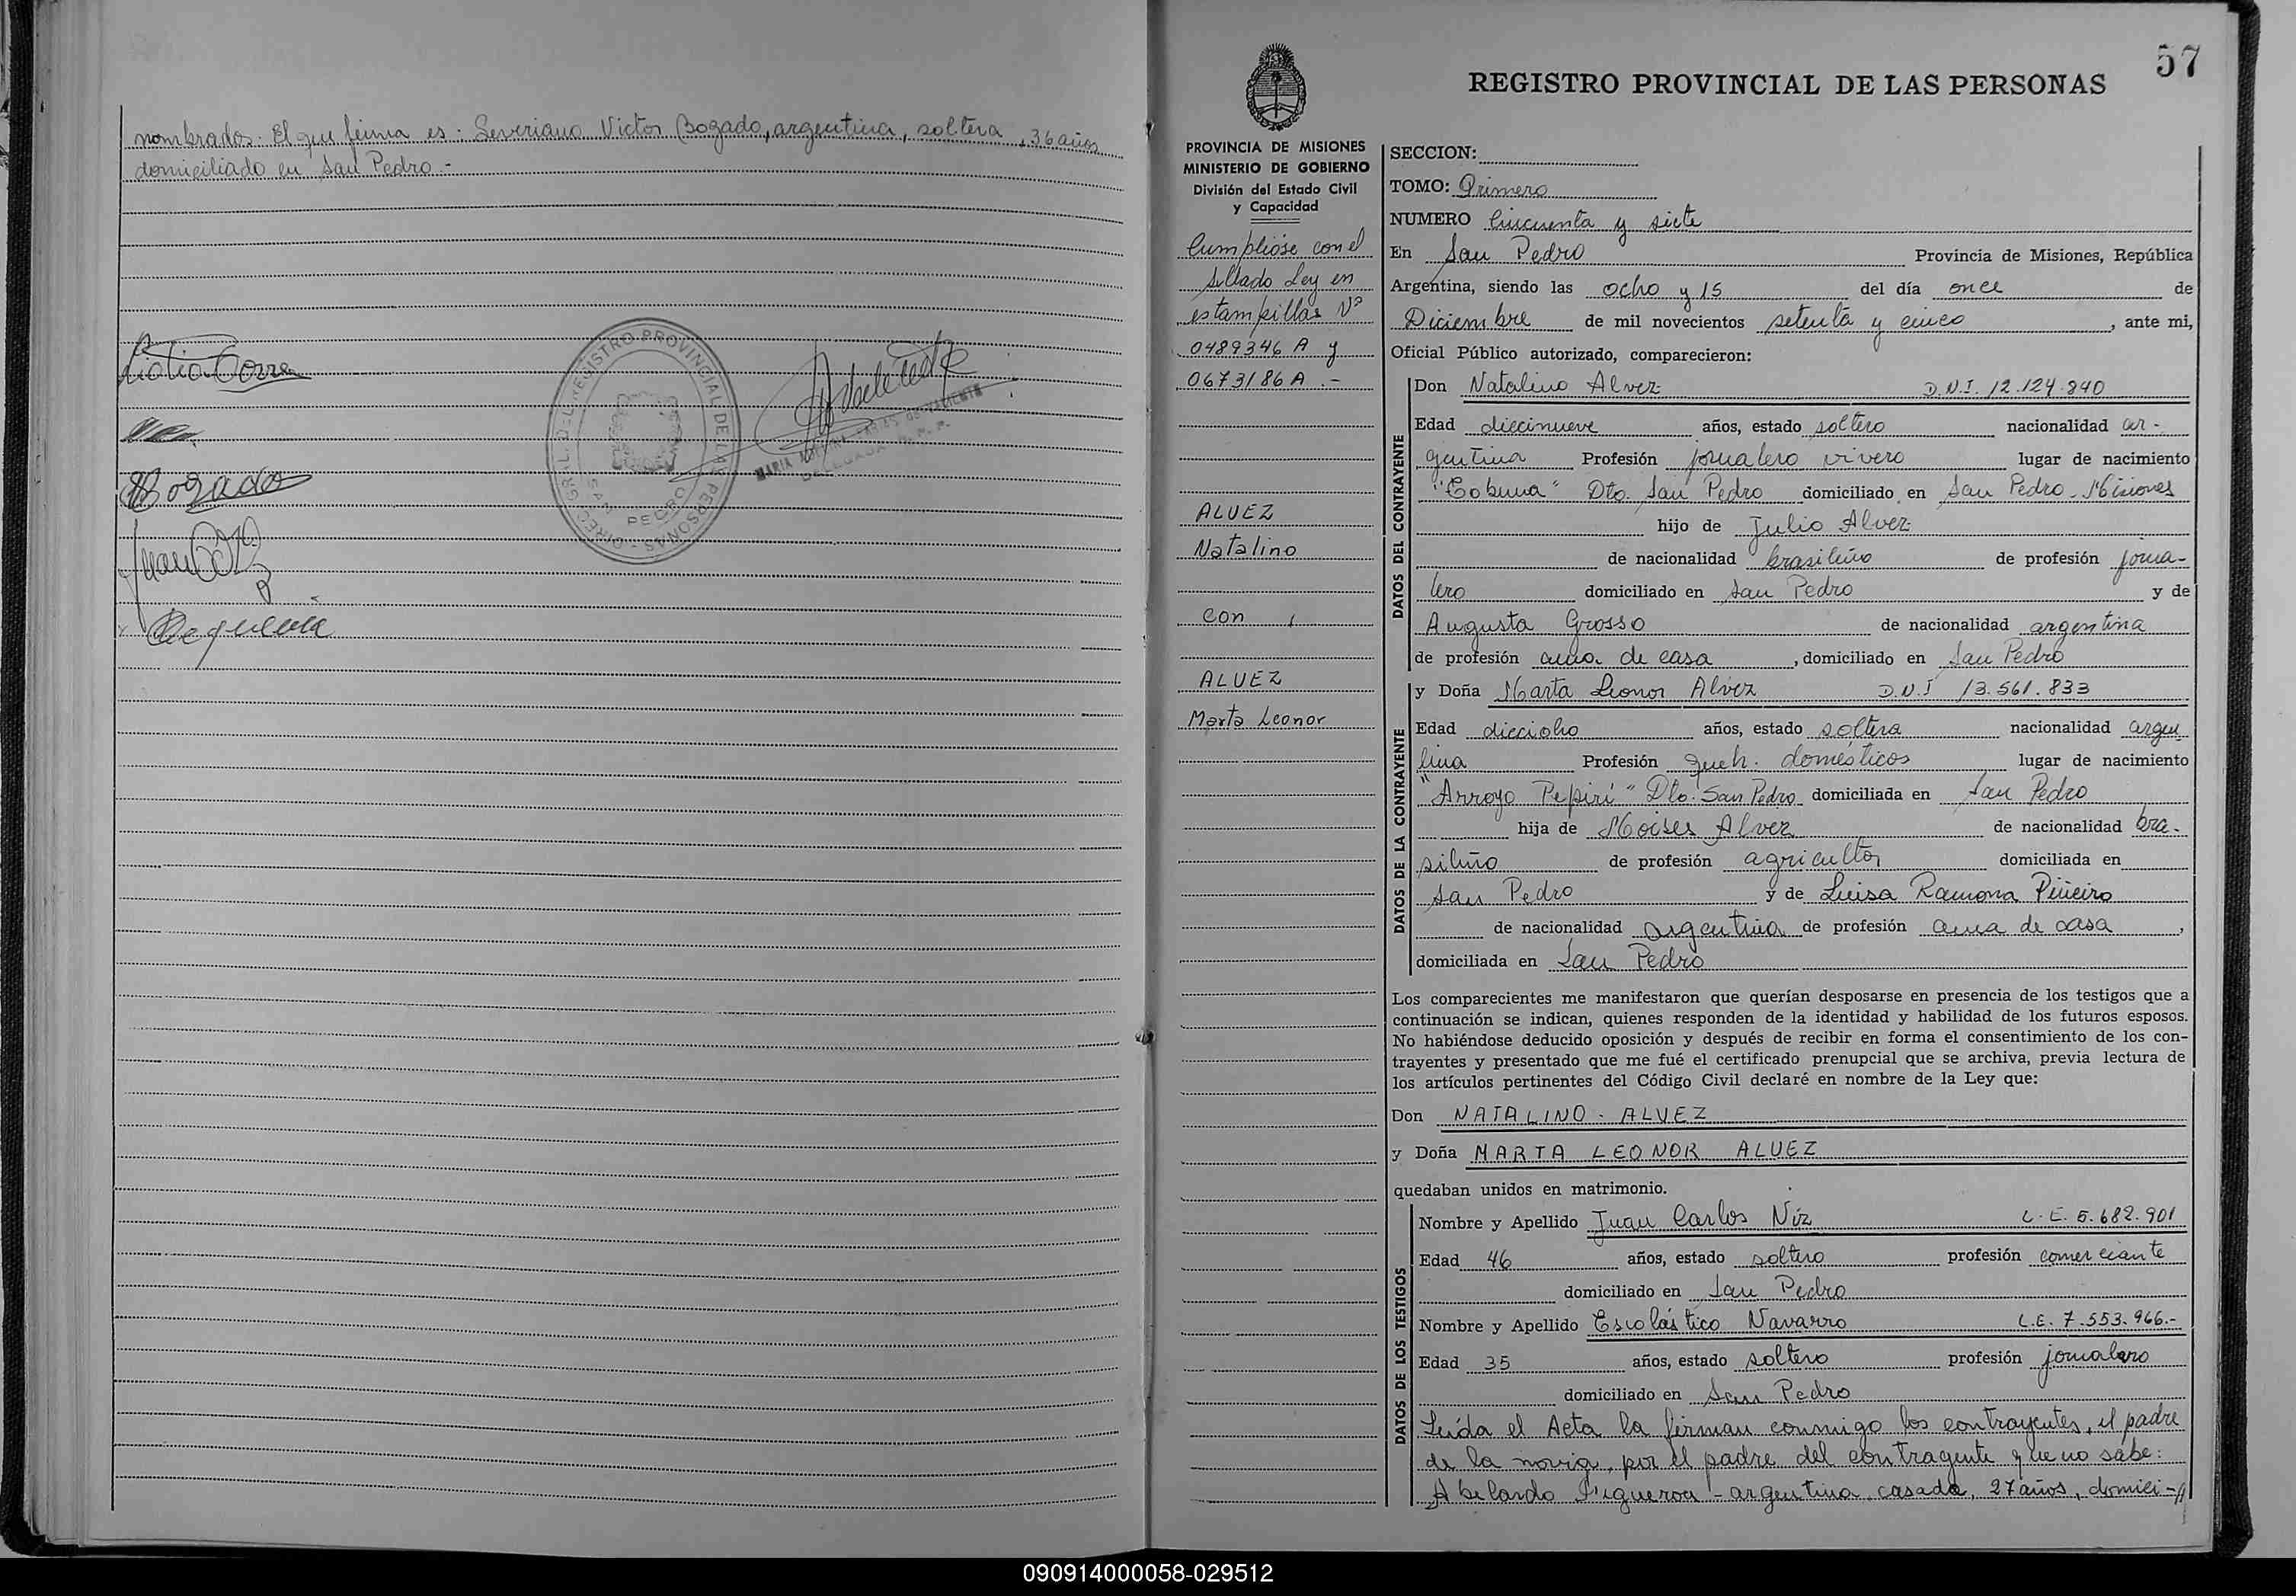 nombrados. El que firma es: Severiano Victor Bogado, argentina, soltera, 36 años
domiciliado en San Pedro.-
Bogado
DIREC. GRAL. DEL REGISTRO PROVINCIAL DE LAS PERSONAS
SAN PEDRO
57
REGISTRO PROVINCIAL DE LAS PERSONAS
PROVINCIA DE MISIONES
MINISTERIO DE GOBIERNO
División del Estado Civil
y Capacidad
Cumplióse con el
sellado Ley en
estampillas Nº
0489346 A y
0673186 A.-
ALVEZ
Natalino
con
ALVEZ
Marta Leonor
SECCION:
TOMO: Primero
NUMERO Cincuenta y siete
En San Pedro Provincia de Misiones, República
Argentina, siendo las ocho y 15 del día once de
Diciembre de mil novecientos setenta y cinco, ante mi,
Oficial Público autorizado, comparecieron:
DATOS DEL CONTRAYENTE
Don Natalino Alvez D.N.I. 12.124.840
Edad diecinueve años, estado soltero nacionalidad ar-
gentina Profesión jornalero vivero lugar de nacimiento
Dto. San Pedro domiciliado en San Pedro - Misiones
hijo de Julio Alvez
de nacionalidad brasileño de profesión jorna-
lero domiciliado en San Pedro y de
Augusta Grosso de nacionalidad argentina
de profesión ama de casa, domiciliado en San Pedro
DATOS DE LA CONTRAYENTE
y Doña Marta Leonor Alvez D.N.I 13.561.833
Edad dieciocho años, estado soltera nacionalidad argen
tina Profesión queh. domésticos lugar de nacimiento
"Arroyo Pepirí" Dto. San Pedro domiciliada en San Pedro
hija de Moises Alvez de nacionalidad bra-
sileño de profesión agricultor domiciliada en
San Pedro y de Luisa Ramona Piñeiro
de nacionalidad argentina de profesión ama de casa,
domiciliada en San Pedro
Los comparecientes me manifestaron que querían desposarse en presencia de los testigos que a
continuación se indican, quienes responden de la identidad y habilidad de los futuros esposos.
No habiéndose deducido oposición y después de recibir en forma el consentimiento de los con-
trayentes y presentado que me fué el certificado prenupcial que se archiva, previa lectura de
los artículos pertinentes del Código Civil declaré en nombre de la Ley que:
Don NATALINO - ALVEZ
y Doña MARTA LEONOR ALVEZ
quedaban unidos en matrimonio.
DATOS DE LOS TESTIGOS
Nombre y Apellido Juan Carlos Niz L.E. 5.682.901
Edad 46 años, estado soltero profesión comerciante
domiciliado en San Pedro
Nombre y Apellido Escolástico Navarro L.E. 7.553.966.-
Edad 35 años, estado soltero profesión jornalero
domiciliado en San Pedro
Leída el Acta la firman conmigo los contrayentes, el padre
de la novia, por el padre del contrayente que no sabe:
Abelardo Figueroa - argentina, casada, 27 años, domici-
090914000058-029512